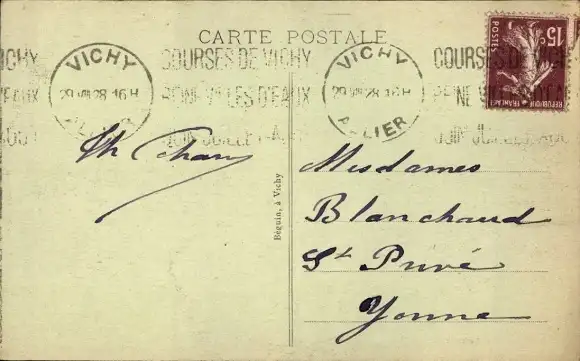 CARTE POSTALE
VICHY
29 VII 28 16H
ALLIER
COURSES DE VICHY
REINE VILLES D'EAUX
JUIN JUILLET AOUT
VICHY
29 VII 28 16H
ALLIER
COURSES DE VICHY
REINE
15c
POSTES
REPUBLIQUE FRANÇAISE
Th
Béguin, à Vichy
Mesdames
Blanchaud
St Privé
Yonne